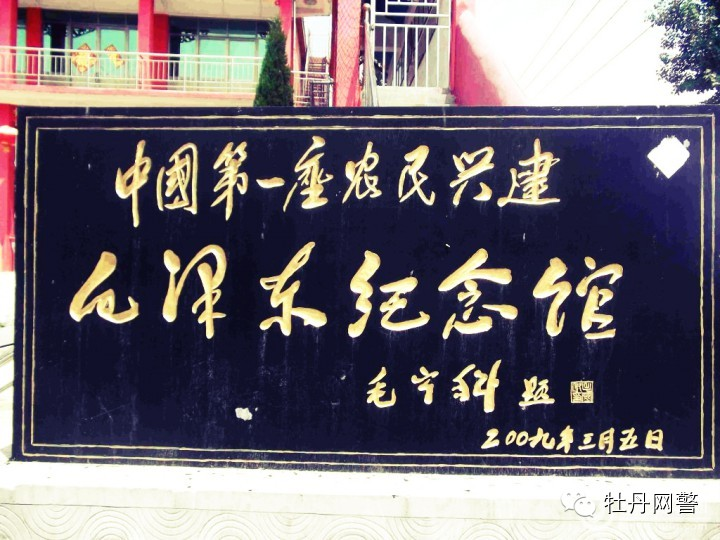 中國第一座农民兴建
毛泽东纪念馆
毛宁科题
2009年三月五日
牡丹网警